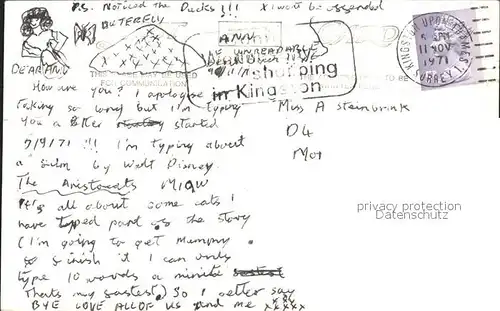 P.S. Noticed the Ducks!!! X wont be offended
BUTTERFLY
ANN
UNREADABLE
shopping
in Kingston
KINGSTON UPON THAMES
PM
11 NOV
1971
SURREY
DEAR ANN
How are you? I apologise
taking so long but I'm typing
you a letter started
7/9/71 !!! I'm typing about
a film by Walt Disney.
The Aristocats MIAW
It's all about some cats I
have typed part of the story
(I'm going to get Mummy.
to finish it I can only
type 10 words a minite
Thats my fastest) So I better say
BYE LOVE ALL OF US and me xxxxx
Miss A Steinbrink
D4
Mor
privacy protection
Datenschutz